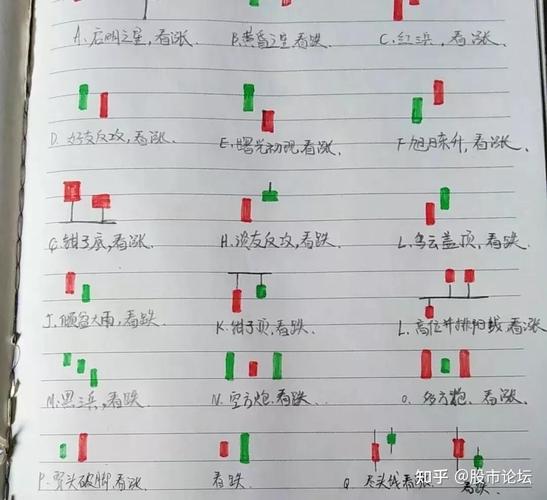 A、启明之星,看涨.
B.黄昏之星看跌.
C.红三兵,看涨
D.好友反攻,看涨.
E.曙光初现看涨.
F.旭日东升,看涨.
G.钳子底,看涨.
H.淡友反攻,看跌.
L.乌云盖顶,看跌.
J.倾盆大雨,看跌.
K.钳子顶,看跌.
L.高位并排阳线看涨
M.黑三兵,看跌.
N.空方炮.看跌.
O.多方炮、看涨.
P.穿头破脚看涨.
看跌.
Q.尽头线看涨.
看跌.
知乎 @股市论坛